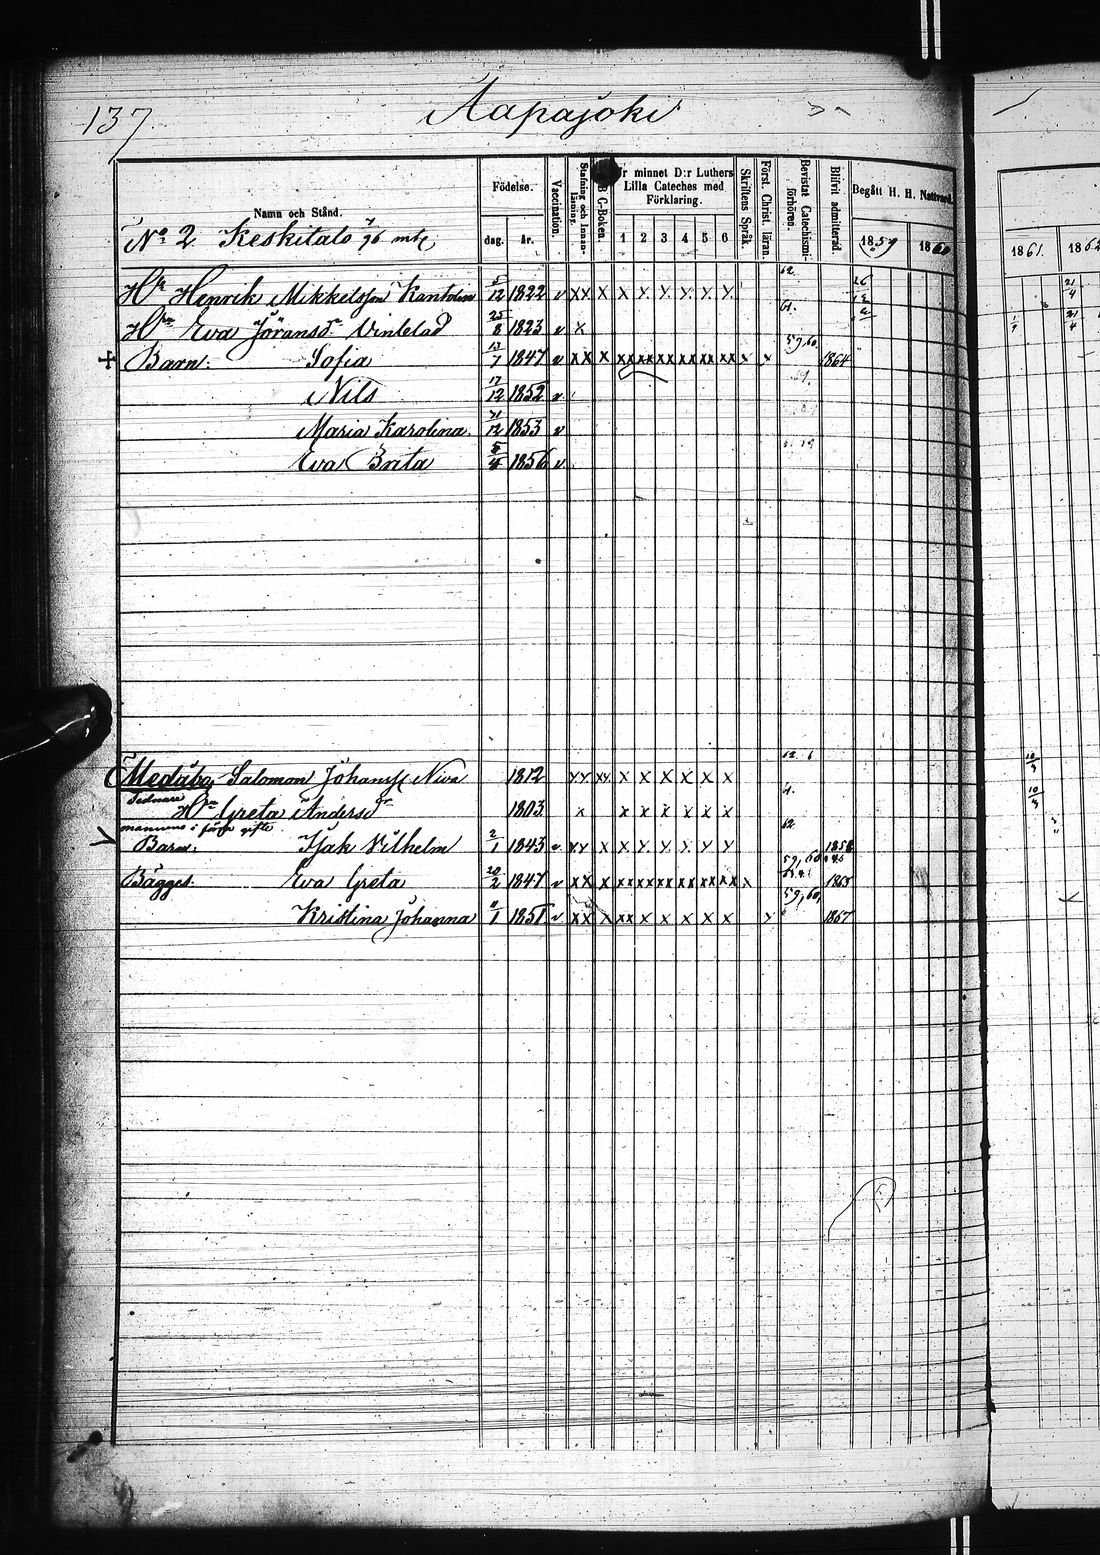 137 Aapajoki
Namn och Stånd. Födelse. dag. år. Vaccination. Stafning och Innanläsning. B C-Boken. r minnet D:r Luthers Lilla Cateches med Förklaring. 1 2 3 4 5 6 Skriftens Språk. Först. Christ. läran. Bevistat Catechismiförhören. Blifvit admitterad. Begått H. H. Nattvard. 1859 1860 1861 1862
No 2 Keskitalo
62. 26
Hr Henrik Mikkelsson 5/12 1822 v x x x x y y y y y
61.
Hn Eva Göransdr 25/8 1823 v x
59, 60
Barn: Sofia 13/7 1847 v x x x xx xx xx xx xx xx 1864
Nils 17/12 1852 v
Maria Karolina 21/12 1853 v
Eva Brita 1856 v
62. 6
Medåbo Salomon Johanss Niva 1812 x x x x x x x x x
Hn Greta Andersdr 1803 x x x x x x x
mannens i förra gifte 62
Barn: Isak Wilhelm 2/1 1843 v x x x x y y y y y 1858
59, 60
Bägges Eva Greta 20/2 1847 v x x x xx xx xx xx xx xx x 1863
59, 60,
Kristina Johanna 1851 v x x x xx x x x x x 1867